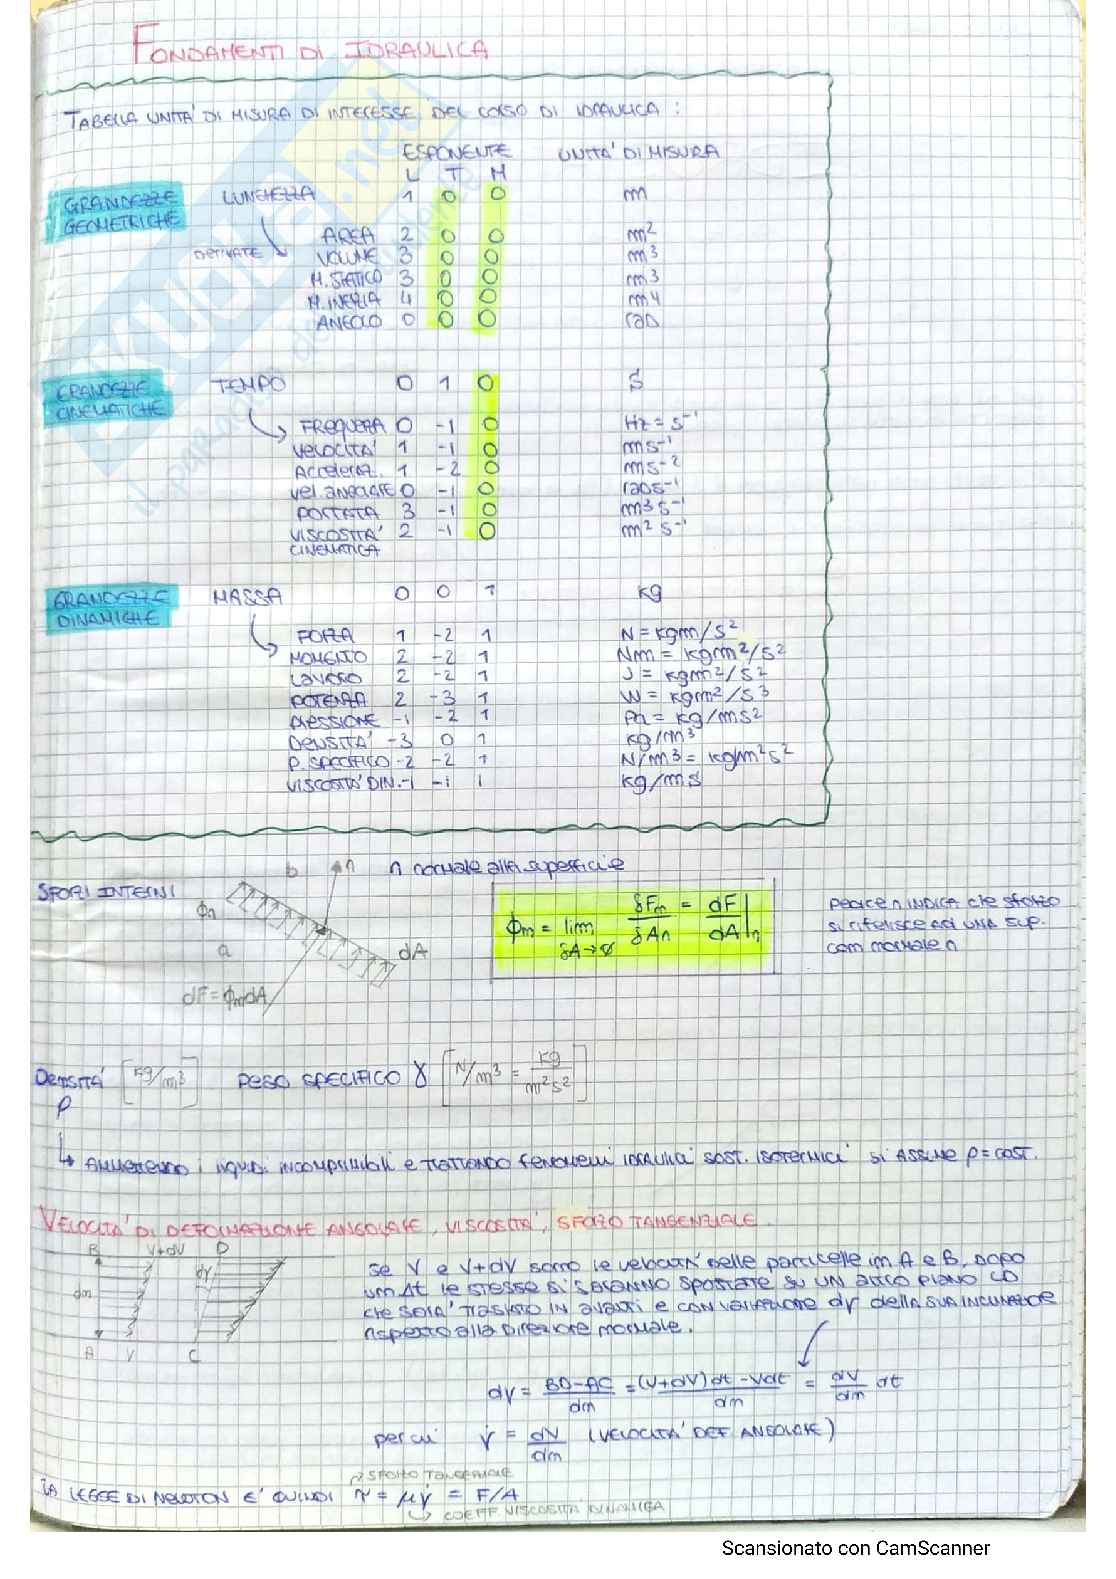 FONDAMENTI DI IDRAULICA
TABELLA UNITA' DI MISURA DI INTERESSE DEL CORSO DI IDRAULICA :
ESPONENTE UNITA' DI MISURA
L T M
GRANDEZZE GEOMETRICHE LUNGHEZZA 1 0 0 m
DERIVATE AREA 2 0 0 m²
VOLUME 3 0 0 m³
M. STATICO 3 0 0 m³
M. INERZIA 4 0 0 m4
ANGOLO 0 0 0 rad
GRANDEZZE CINEMATICHE TEMPO 0 1 0 s
FREQUENZA 0 -1 0 Hz = s⁻¹
VELOCITA' 1 -1 0 ms⁻¹
Acceleraz. 1 -2 0 ms⁻²
Vel. ANGOLARE 0 -1 0 rads⁻¹
PORTATA 3 -1 0 m³s⁻¹
VISCOSITA' CINEMATICA 2 -1 0 m² s⁻¹
GRANDEZZE DINAMICHE MASSA 0 0 1 kg
FORZA 1 -2 1 N = kgm/s²
MOMENTO 2 -2 1 Nm = kgm²/s²
LAVORO 2 -2 1 J = kgm²/s²
POTENZA 2 -3 1 W = kgm²/s³
PRESSIONE -1 -2 1 Pa = kg/ms²
DENSITA' -3 0 1 kg/m³
P. SPECIFICO -2 -2 1 N/m³ = kg/m²s²
VISCOSITA' DIN. -1 -1 1 kg/ms
SFORZI INTERNI
b n n normale alla superficie
ϕn a dA
dF = ϕn dA
ϕn = lim δA→0 δFn/δAn = dF/dA|n
pedice n INDICA che sforzo
si riferisce ad UNA SUP.
con normale n
Densità [kg/m³] PESO SPECIFICO γ [N/m³ = kg/m²s²]
ρ
↳ AMMETTENDO i liquidi incomprimibili e TRATTANDO fenomeni IDRAULICI SOST. ISOTERMICI si ASSUME ρ = COST.
VELOCITA' DI DEFORMAZIONE ANGOLARE, VISCOSITA', SFORZO TANGENZIALE
B V+dV D
dγ
dn
A V C
se V e V+dV sono le velocità delle particelle in A e B, dopo
un Δt le stesse si saranno spostate su un altro piano CD
che sarà traslato in avanti e con variazione dγ della sua inclinazione
rispetto alla direzione normale.
dγ = BD-AC/dn = (V+dV)dt - Vdt/dn = dV/dn dt
per cui γ̇ = dV/dn (VELOCITA' DEF ANGOLARE)
SFORZO TANGENZIALE
LA LEGGE DI NEWTON E' QUINDI τ = μγ̇ = F/A
↳ COEFF. VISCOSITA' DINAMICA
Scansionato con CamScanner